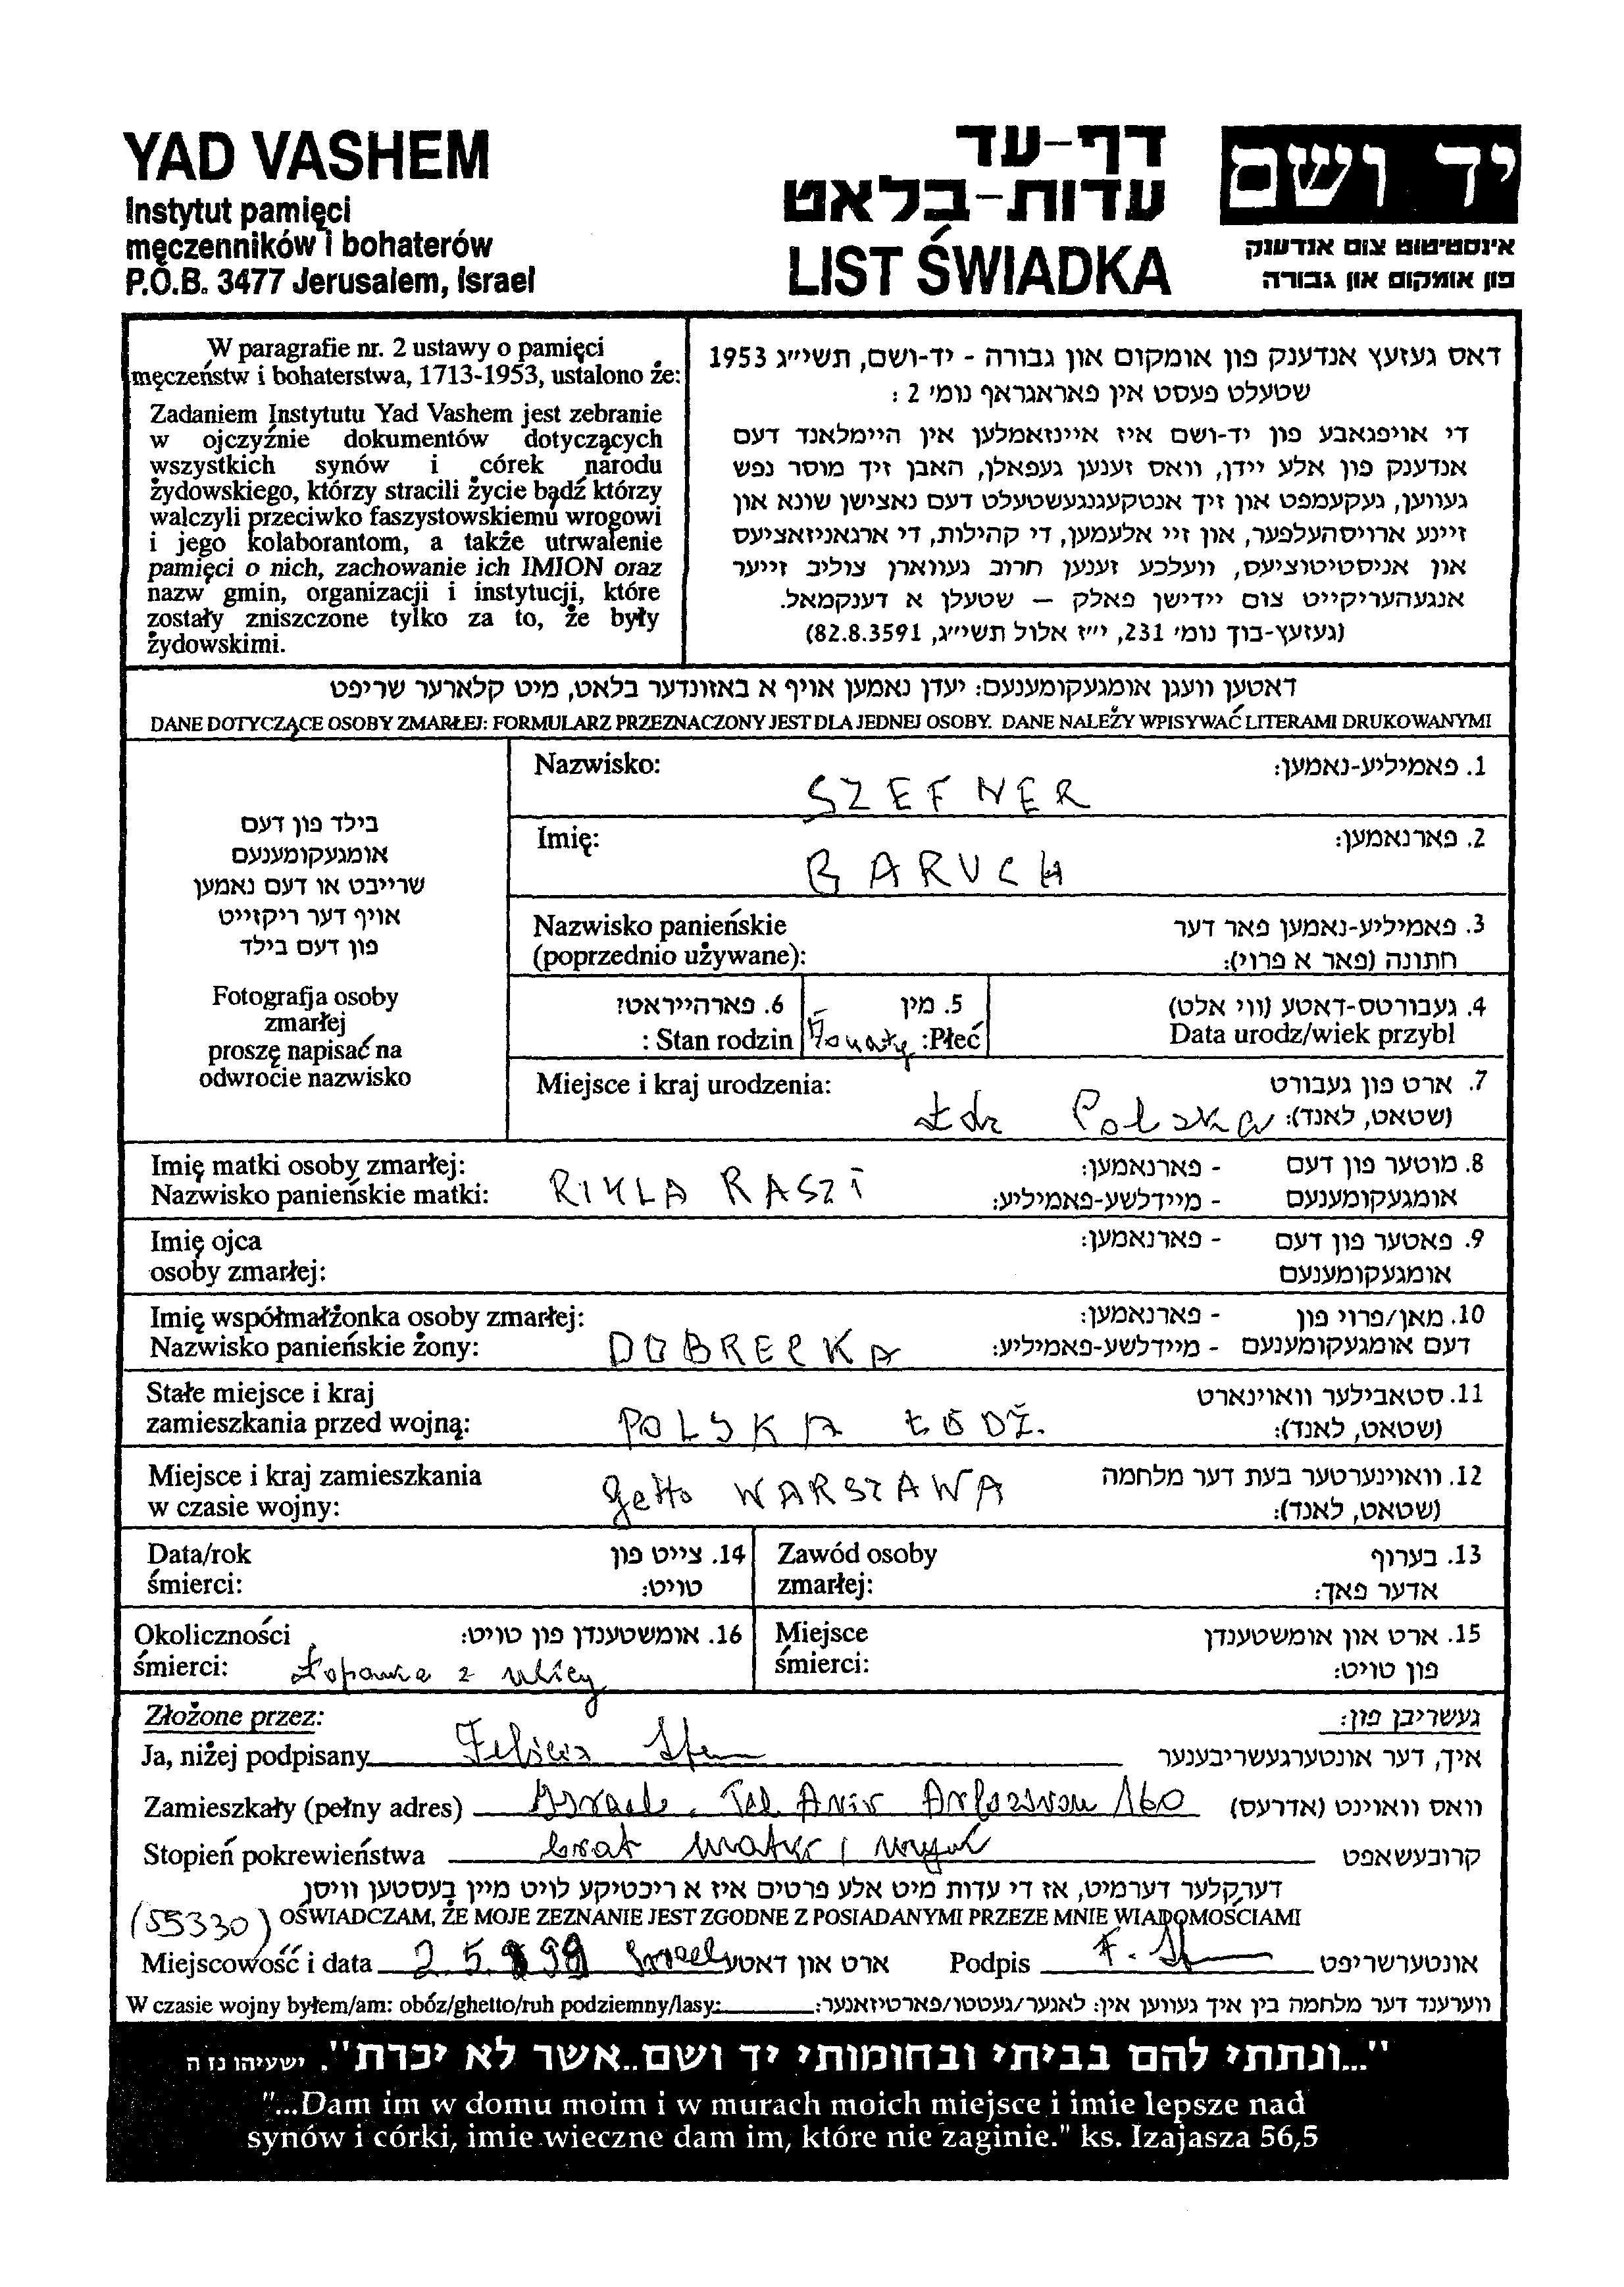 YAD VASHEM
Instytut pamięci
męczenników i bohaterów
P.O.B. 3477 Jerusalem, Israel
דף-עד
עדות-בלאט
LIST ŚWIADKA
יד ושם
אינסטיטוט צום אנדענק
פון אומקום און גבורה
W paragrafie nr. 2 ustawy o pamięci
męczeństw i bohaterstwa, 1713-1953, ustalono że:
Zadaniem Instytutu Yad Vashem jest zebranie
w ojczyźnie dokumentów dotyczących
wszystkich synów i córek narodu
żydowskiego, którzy stracili życie bądź którzy
walczyli przeciwko faszystowskiemu wrogowi
i jego kolaborantom, a także utrwalenie
pamięci o nich, zachowanie ich IMION oraz
nazw gmin, organizacji i instytucji, które
zostały zniszczone tylko za to, że były
żydowskimi.
דאס געזעץ אנדענק פון אומקום און גבורה - יד-ושם, תשי״ג 1953
שטעלט פעסט אין פאראגראף נומ׳ 2 :
די אויפגאבע פון יד-ושם איז איינזאמלען אין היימלאנד דעם
אנדענק פון אלע יידן, וואס זענען געפאלן, האבן זיך מוסר נפש
געווען, געקעמפט און זיך אנטקעגנגעשטעלט דעם נאצישן שונא און
זיינע ארויסהעלפער, און זיי אלעמען, די קהילות, די ארגאניזאציעס
און אניסטיטוציעס, וועלכע זענען חרוב געווארן צוליב זייער
אנגעהעריקייט צום יידישן פאלק – שטעלן א דענקמאל.
(געזעץ-בוך נומ׳ 231, י״ז אלול תשי״ג, 82.8.3591)
דאטען וועגן אומגעקומענעם: יעדן נאמען אויף א באזונדער בלאט, מיט קלארער שריפט
DANE DOTYCZĄCE OSOBY ZMARŁEJ: FORMULARZ PRZEZNACZONY JEST DLA JEDNEJ OSOBY. DANE NALEŻY WPISYWAĆ LITERAMI DRUKOWANYMI
בילד פון דעם
אומגעקומענעם
שרייבט או דעם נאמען
אויף דער ריקזייט
פון דעם בילד
Fotografja osoby
zmarłej
proszę napisać na
odwrocie nazwisko
Nazwisko: SZEFNER 1. פאמיליע-נאמען:
Imię: BARUCH 2. פארנאמען:
Nazwisko panieńskie 3. פאמיליע-נאמען פאר דער
(poprzednio używane): חתונה (פאר א פרוי):
6. פארהייראט? 5. מין 4. געבורטס-דאטע (ווי אלט)
Stan rodzin : Żonaty Płeć: Data urodz/wiek przybl
Miejsce i kraj urodzenia: 7. ארט פון געבורט
Łdz Polska (שטאט, לאנד):
Imię matki osoby zmarłej: - פארנאמען: 8. מוטער פון דעם
Nazwisko panieńskie matki: RIKLA RASZI - מיידלשע-פאמיליע: אומגעקומענעם
Imię ojca - פארנאמען: 9. פאטער פון דעם
osoby zmarłej: אומגעקומענעם
Imię współmałżonka osoby zmarłej: - פארנאמען: 10. מאן/פרוי פון
Nazwisko panieńskie żony: DOBRECKA - מיידלשע-פאמיליע: דעם אומגעקומענעם
Stałe miejsce i kraj 11. סטאבילער וואוינארט
zamieszkania przed wojną: POLSKA ŁÓDŹ. (שטאט, לאנד):
Miejsce i kraj zamieszkania 12. וואוינערטער בעת דער מלחמה
w czasie wojny: getto WARSZAWA (שטאט, לאנד):
Data/rok 14. צייט פון Zawód osoby 13. בערוף
śmierci: טויט: zmarłej: אדער פאך:
Okoliczności 16. אומשטענדן פון טויט: Miejsce 15. ארט און אומשטענדן
śmierci: Łapanie z ulicy śmierci: פון טויט:
Złożone przez: געשריבן פון:
Ja, niżej podpisany Felicia איך, דער אונטערגעשריבענער
Zamieszkały (pełny adres) Israel. Tel Aviv Arlozorow 160 וואס וואוינט (אדרעס)
Stopień pokrewieństwa brat matki i wujek קרובעשאפט
דערקלער דערמיט, אז די עדות מיט אלע פרטים איז א ריכטיקע לויט מיין בעסטען וויסן
(55330) OŚWIADCZAM, ŻE MOJE ZEZNANIE JEST ZGODNE Z POSIADANYMI PRZEZE MNIE WIADOMOŚCIAMI
Miejscowość i data 2.5. 99 Israel ארט און דאטע Podpis F. אונטערשריפט
W czasie wojny byłem/am: obóz/ghetto/ruh podziemny/lasy: ווערענד דער מלחמה בין איך געווען אין: לאגער/געטטו/פארטיזאנער:
"...ונתתי להם בביתי ובחומותי יד ושם..אשר לא יכרת". ישעיהו נז ה
"...Dam im w domu moim i w murach moich miejsce i imie lepsze nad
synów i córki, imie wieczne dam im, które nie zaginie." ks. Izajasza 56,5